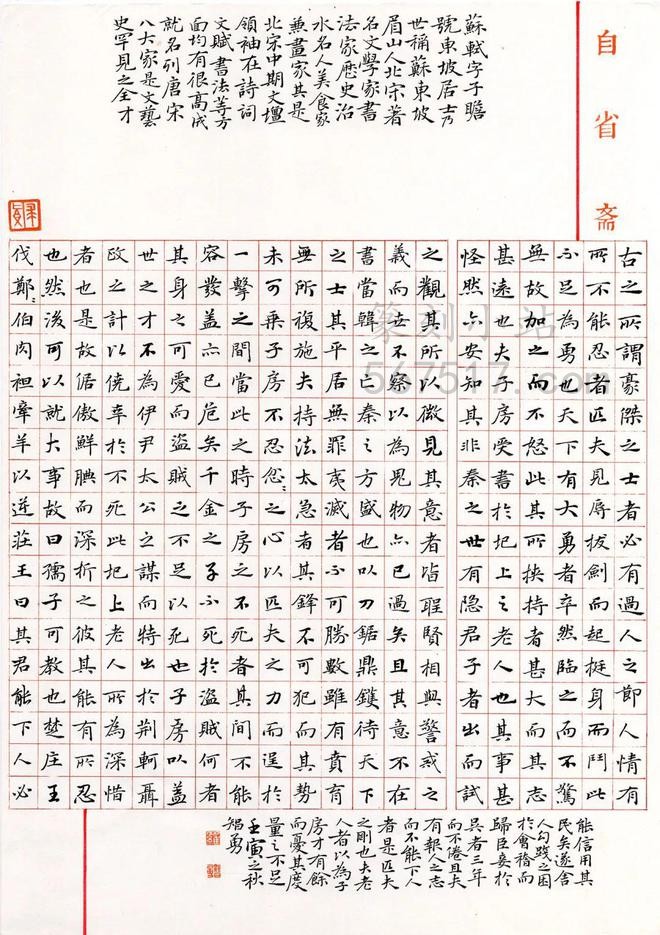 蘇軾字子瞻
號東坡居士乃
世稱蘇東坡
眉山人北宋著
名文學家書
法家歷史治
水名人美食家
兼畫家其是
北宋中期文壇
領袖在詩詞
文賦書法等方
面均有很高成
就名列唐宋
八大家是文藝
史罕見之全才
自省斋
古之所謂豪傑之士者必有過人之節人情有
所不能忍者匹夫見辱拔劍而起挺身而鬥此
不足為勇也天下有大勇者卒然臨之而不驚
無故加之而不怒此其所挾持者甚大而其志
甚遠也夫子房受書於圯上之老人也其事甚
怪然亦安知其非秦之世有隐君子者出而試
之觀其所以微見其意者皆聖賢相與警戒之
義而世不察以為鬼物亦已過矣且其意不在
書當韓之亡秦之方盛也以刀鋸鼎鑊待天下
之士其平居無罪夷滅者不可勝數雖有賁育
無所復施夫持法太急者其鋒不可犯而其勢
未可乘子房不忍忿〻之心以匹夫之力而逞於
一擊之間當此之時子房之不死者其間不能
容發蓋亦已危矣千金之子不死於盜賊何者
其身之可愛而盜賊之不足以死也子房以蓋
世之才不為伊尹太公之謀而特出於荊軻聶
政之計以僥幸於不死此圯上老人所為深惜
者也是故倨傲鮮腆而深折之彼其能有所忍
也然後可以就大事故曰孺子可教也楚庄王
伐鄭〻伯肉袒牽羊以逆莊王曰其君能下人必
能信用其
民矣遂舍
之勾踐之困
於會稽而
歸臣妾於
吳者三年
而不倦且夫
有報人之志
而不能下人
者是匹夫
之剛也夫老
人者以為子
房才有餘
而憂其度
量之不足
壬寅之秋
智勇
篆刻小站
567517.com